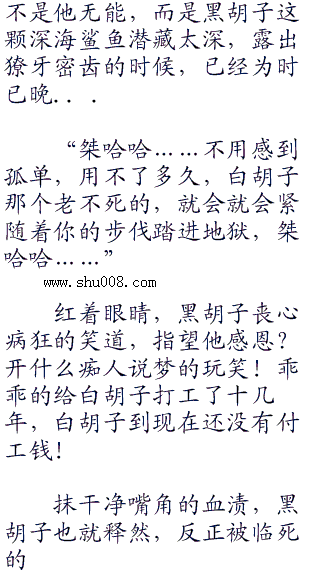 不是他无能，而是黑胡子这
颗深海鲨鱼潜藏太深，露出
獠牙密齿的时候，已经为时
已晚．．．
“桀哈哈……不用感到
孤单，用不了多久，白胡子
那个老不死的，就会就会紧
随着你的步伐踏进地狱，桀
哈哈……”
www.shu008.com
红着眼睛，黑胡子丧心
病狂的笑道，指望他感恩？
开什么痴人说梦的玩笑！乖
乖的给白胡子打工了十几
年，白胡子到现在还没有付
工钱！
抹干净嘴角的血渍，黑
胡子也就释然，反正被临死
的